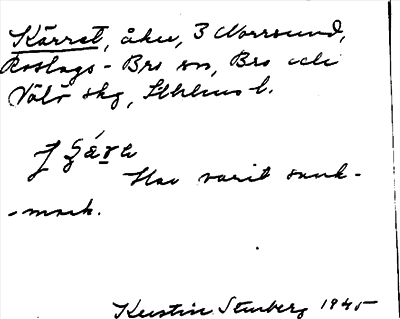 Kärret, åker, 3 Norrsund,
Roslags-Bro sn, Bro och
Vätö skg, Sthlms l.
Har varit sank-
-mark.
Kerstin Stenberg 1945